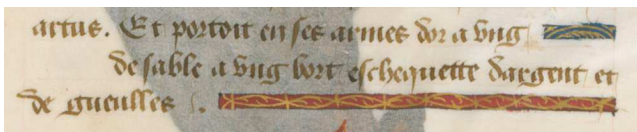 artus. Et portoit en ses armes dor a vng
de sable a vng bort eschequette dargent et
de gueulles .